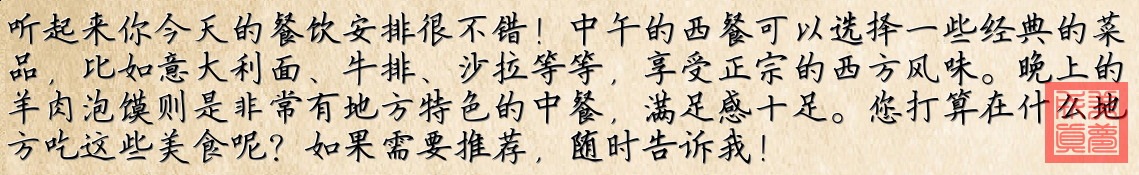 听起来你今天的餐饮安排很不错！中午的西餐可以选择一些经典的菜
品，比如意大利面、牛排、沙拉等等，享受正宗的西方风味。晚上的
羊肉泡馍则是非常有地方特色的中餐，满足感十足。您打算在什么地
方吃这些美食呢？如果需要推荐，随时告诉我！